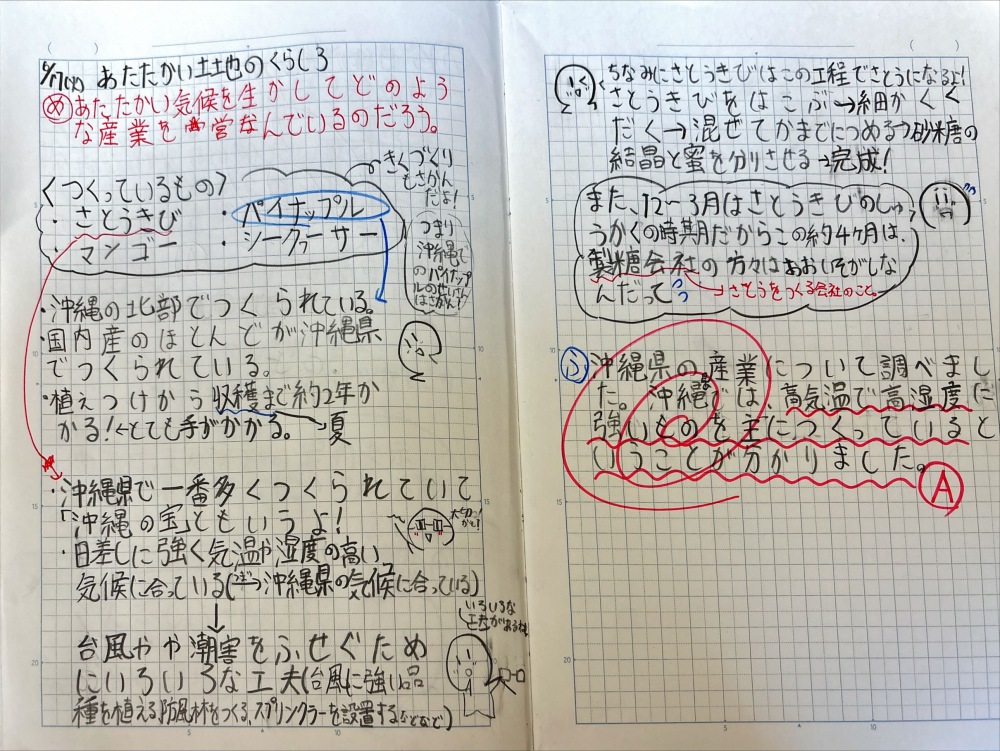 6/17(火) あたたかい土地のくらし3
め あたたかい気候を生かしてどのよう
な産業を営なんでいるのだろう。
きくづくり
もさかん
だよ!
<つくっているもの>
・さとうきび ・パイナップル
・マンゴー ・シークァーサー
つまり
沖縄で
のパイナップ
ルの
はさかん!
・沖縄の北部でつくられている。
・国内産のほとんどが沖縄県
でつくられている。
・植えつけから収穫まで約2年か
かる!←とても手がかかる。 夏
・沖縄県で一番多くつくられていて
「沖縄の宝」ともいうよ!
大切
・日差しに強く気温や湿度の高い
気候に合っている(つまり→沖縄県の気候に合っている)
↓
いろいろな
工夫があるね
台風やや潮害をふせぐため
にいろいろな工夫(台風に強い品
種を植える、防風林をつくる、スプリンクラーを設置するなどなど)
ちなみにさとうきびはこの工程でさとうになるよ!
さとうきびをはこぶ→細かくく
だく→混ぜてかまでにつめる→砂糖の
結晶と蜜を分りさせる→完成!
また、12〜3月はさとうきびのしゅ
うかくの時期だからこの約4ヶ月は、
製糖会社の方々はおおいそがしな
んだって
→さとうをつくる会社のこと。
ふ 沖縄県の産業について調べまし
た。沖縄では、高気温で高湿度に
強いものを主につくっていると
いうことが分かりました。
A